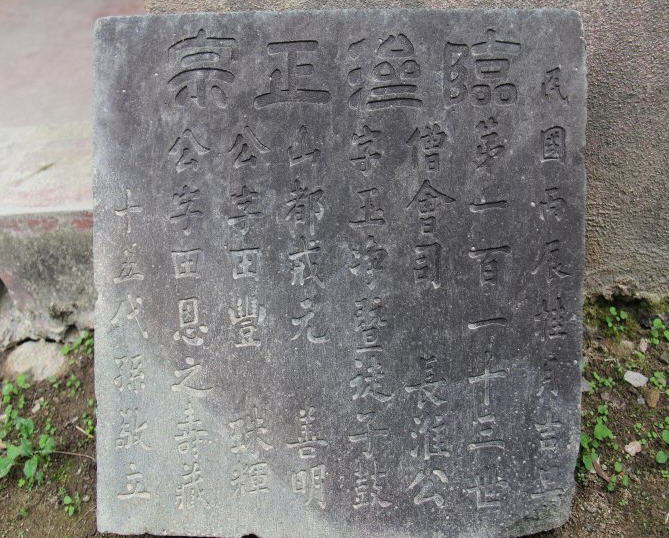 臨濟正宗
民國丙辰桂月吉
第一百一十三世
僧會司 長淮公
字玉净暨徒子鼓
山都戒元 善明
公字田豐 珠輝
公字田恩之壽藏
十五代孫敬立